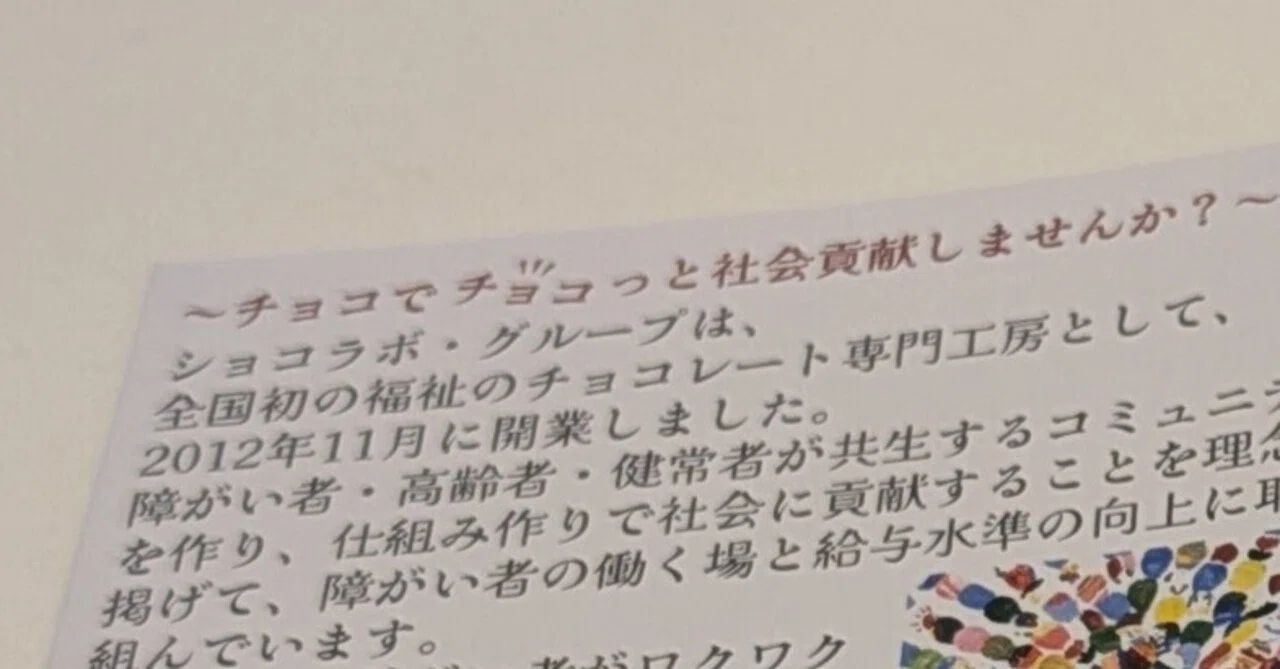 ～チョコでチョコっと社会貢献しませんか？～
ショコラボ・グループは、
全国初の福祉のチョコレート専門工房として、
2012年11月に開業しました。
障がい者・高齢者・健常者が共生するコミュニテ
を作り、仕組み作りで社会に貢献することを理念
掲げて、障がい者の働く場と給与水準の向上に取
組んでいます。
者がワクワク